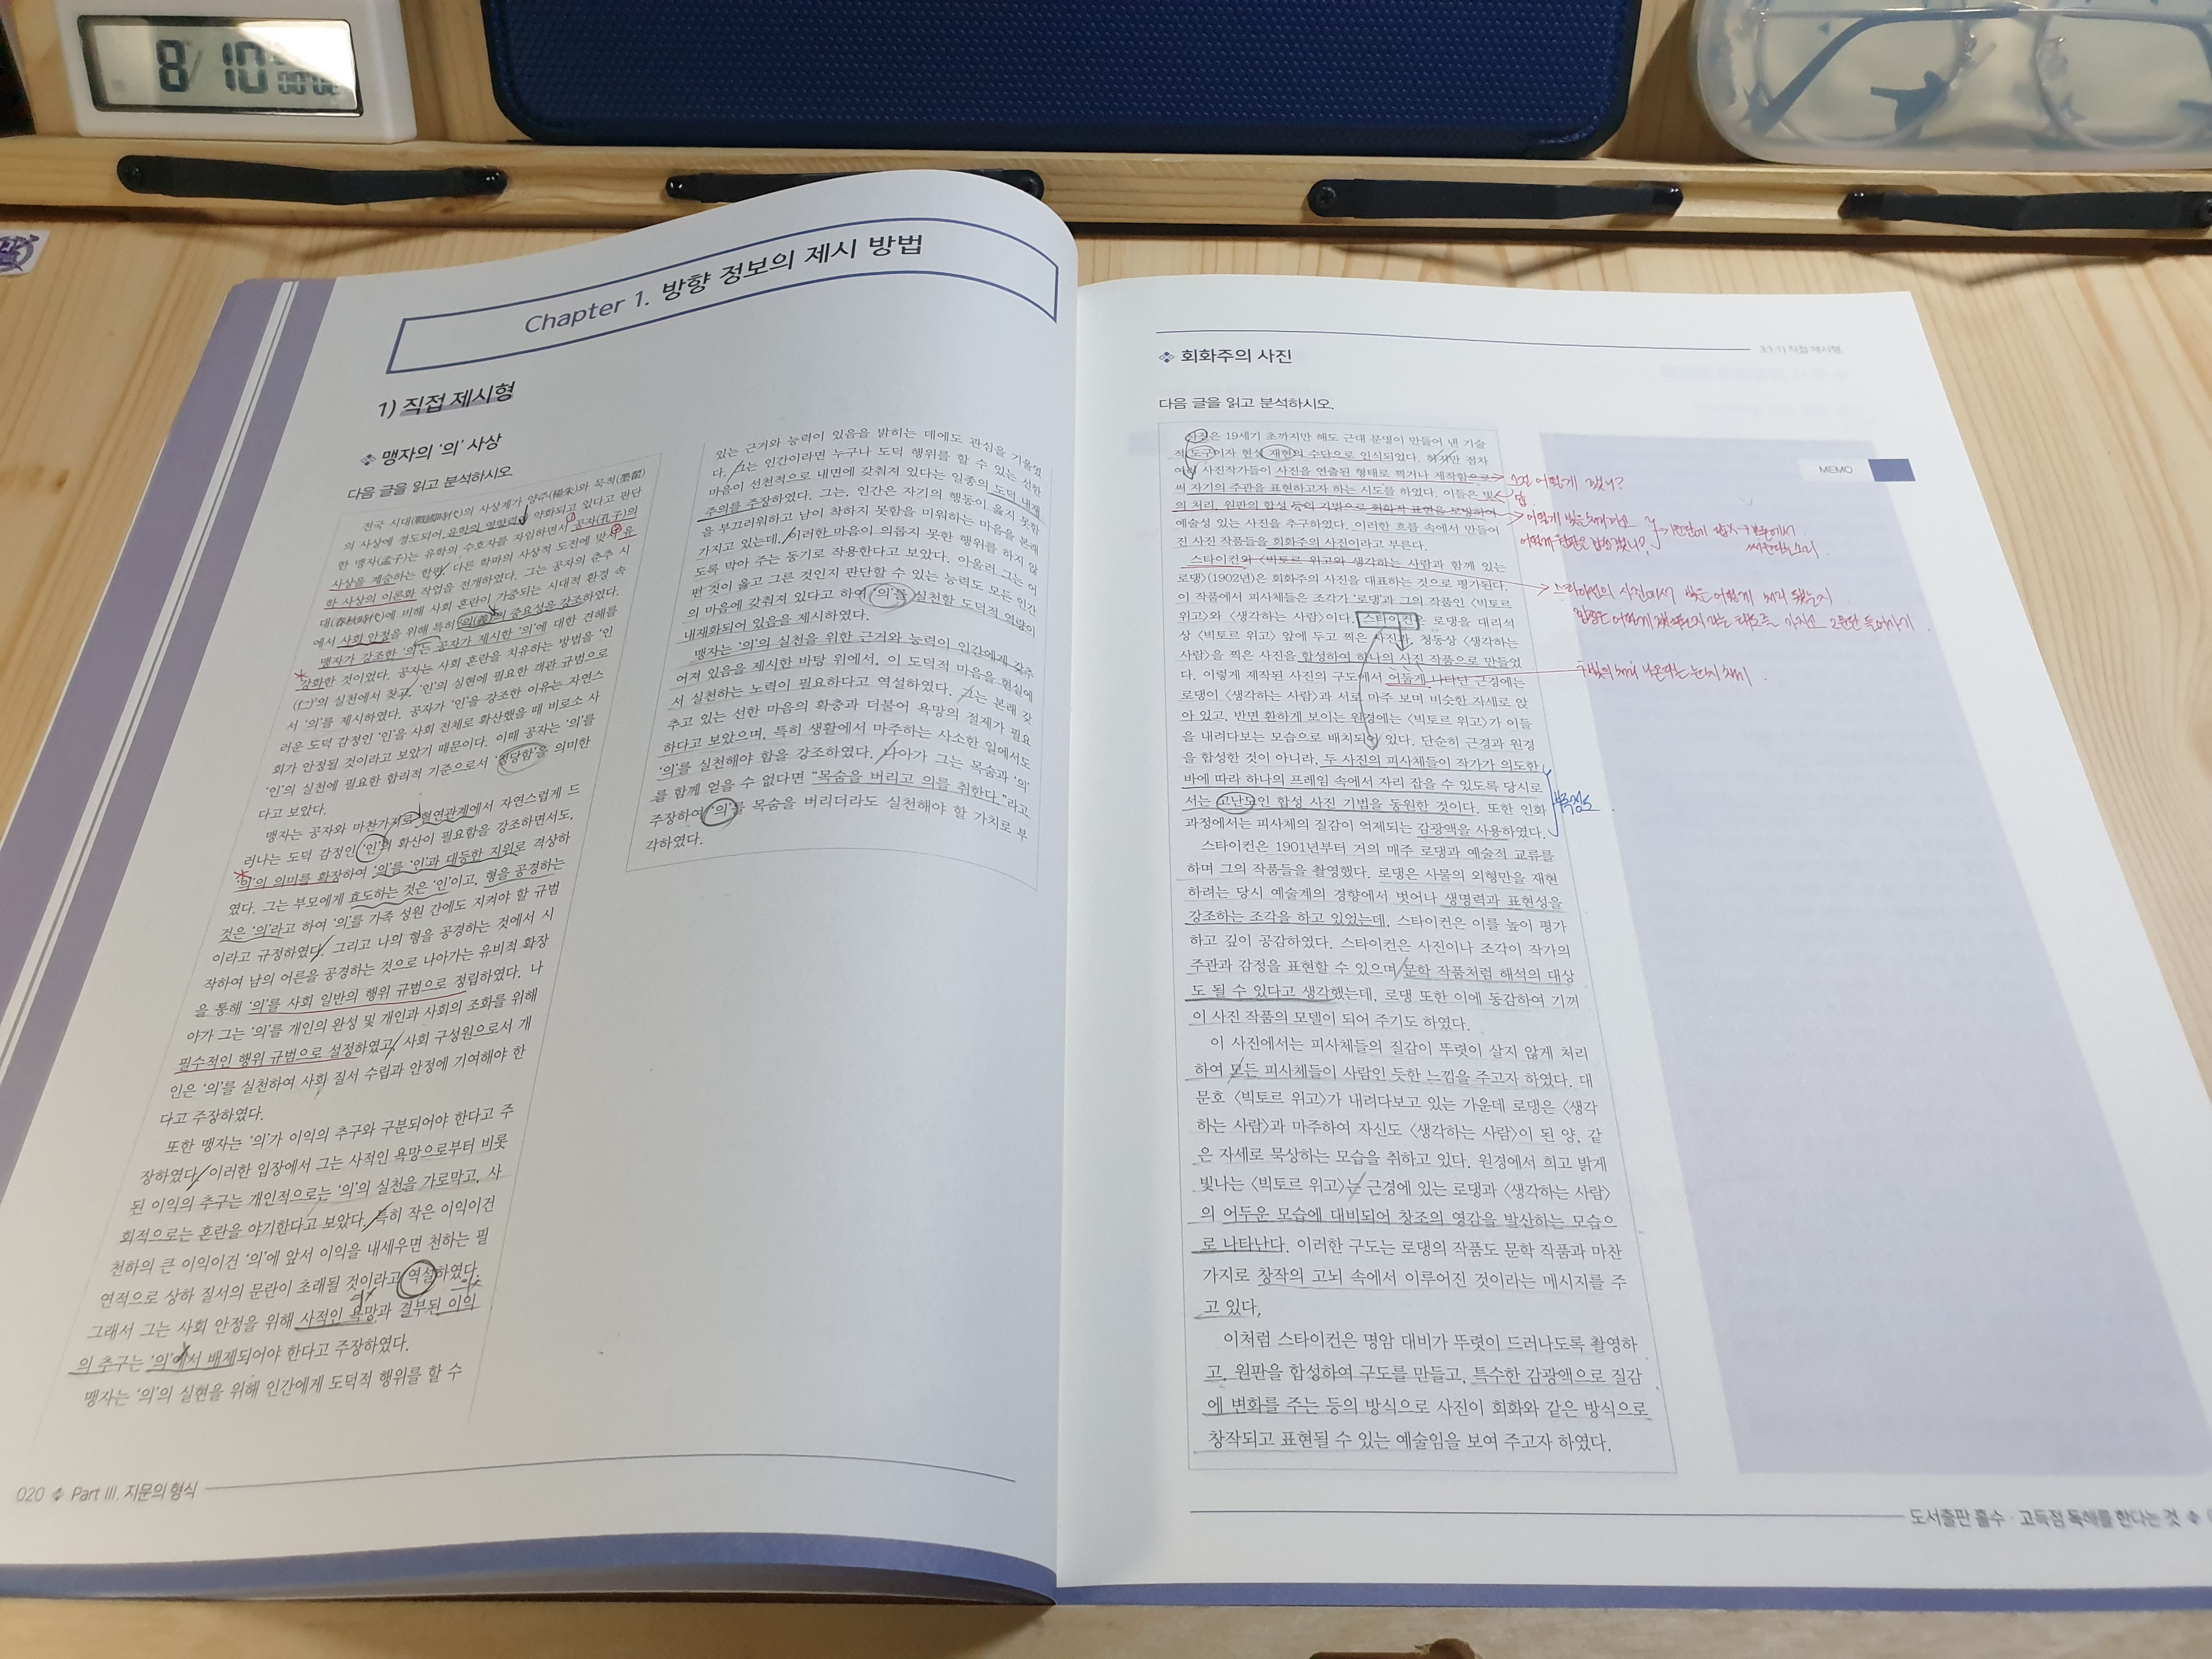 8/10
Chapter 1. 방향 정보의 제시 방법
1) 직접 제시형
맹자의 '의' 사상
다음 글을 읽고 분석하시오.
전국 시대(戰國時代)의 사상계가 양주(楊朱)와 묵적(墨翟)
의 사상에 경도되어 유학의 영향력이 약화되고 있다고 판단
한 맹자(孟子)는 유학의 수호자를 자임하면서 공자(孔子)의
사상을 계승하는 한편, 다른 학파의 사상적 도전에 맞서 유
학 사상의 이론화 작업을 전개하였다. 그는 공자의 춘추 시
대(春秋時代)에 비해 사회 혼란이 가중되는 시대적 환경 속
에서 사회 안정을 위해 특히 '의(義)'의 중요성을 강조하였다.
맹자가 강조한 '의'는 공자가 제시한 '의'에 대한 견해를
강화한 것이었다. 공자는 사회 혼란을 치유하는 방법을 '인
(仁)'의 실천에서 찾고, '인'의 실현에 필요한 객관 규범으로
서 '의'를 제시하였다. 공자가 '인'을 강조한 이유는 자연스
러운 도덕 감정인 '인'을 사회 전체로 확산했을 때 비로소 사
회가 안정될 것이라고 보았기 때문이다. 이때 공자는 '의'를
'인'의 실천에 필요한 합리적 기준으로서 '정당함'을 의미한
다고 보았다.
맹자는 공자와 마찬가지로 혈연관계에서 자연스럽게 드
러나는 도덕 감정인 '인'의 확산이 필요함을 강조하면서도,
'의'의 의미를 확장하여 '의'를 '인'과 대등한 지위로 격상하
였다. 그는 부모에게 효도하는 것은 '인'이고, 형을 공경하는
것은 '의'라고 하여 '의'를 가족 성원 간에도 지켜야 할 규범
이라고 규정하였다. 그리고 나의 형을 공경하는 것에서 시
작하여 남의 어른을 공경하는 것으로 나아가는 유비적 확장
을 통해 '의'를 사회 일반의 행위 규범으로 정립하였다. 나
아가 그는 '의'를 개인의 완성 및 개인과 사회의 조화를 위해
필수적인 행위 규범으로 설정하였고, 사회 구성원으로서 개
인은 '의'를 실천하여 사회 질서 수립과 안정에 기여해야 한
다고 주장하였다.
또한 맹자는 '의'가 이익의 추구와 구분되어야 한다고 주
장하였다. 이러한 입장에서 그는 사적인 욕망으로부터 비롯
된 이익의 추구는 개인적으로는 '의'의 실천을 가로막고, 사
회적으로는 혼란을 야기한다고 보았다. 특히 작은 이익이건
천하의 큰 이익이건 '의'에 앞서 이익을 내세우면 천하는 필
연적으로 상하 질서의 문란이 초래될 것이라고 역설하였다.
그래서 그는 사회 안정을 위해 사적인 욕망과 결부된 이익
의 추구는 '의'에서 배제되어야 한다고 주장하였다.
맹자는 '의'의 실현을 위해 인간에게 도덕적 행위를 할 수
있는 근거와 능력이 있음을 밝히는 데에도 관심을 기울였
다. 그는 인간이라면 누구나 도덕 행위를 할 수 있는 선한
마음이 선천적으로 내면에 갖춰져 있다는 일종의 도덕 내재
주의를 주장하였다. 그는, 인간은 자기의 행동이 옳지 못함
을 부끄러워하고 남이 착하지 못함을 미워하는 마음을 본래
가지고 있는데, 이러한 마음이 의롭지 못한 행위를 하지 않
도록 막아 주는 동기로 작용한다고 보았다. 아울러 그는 어
떤 것이 옳고 그른 것인지 판단할 수 있는 능력도 모든 인간
의 마음에 갖춰져 있다고 하여 '의'를 실천할 도덕적 역량이
내재화되어 있음을 제시하였다.
맹자는 '의'의 실천을 위한 근거와 능력이 인간에게 갖추
어져 있음을 제시한 바탕 위에서, 이 도덕적 마음을 현실에
서 실천하는 노력이 필요하다고 역설하였다. 그는 본래 갖
추고 있는 선한 마음의 확충과 더불어 욕망의 절제가 필요
하다고 보았으며, 특히 생활에서 마주하는 사소한 일에서도
'의'를 실천해야 함을 강조하였다. 나아가 그는 목숨과 '의'
를 함께 얻을 수 없다면 "목숨을 버리고 의를 취한다."라고
주장하여 '의'를 목숨을 버리더라도 실천해야 할 가치로 부
각하였다.
020 Part III. 지문의 형식
3.1.1) 직접 제시형
회화주의 사진
다음 글을 읽고 분석하시오.
MEMO
사진은 19세기 초까지만 해도 근대 문명이 만들어 낸 기술
적 도구이자 현실 재현의 수단으로 인식되었다. 하지만 점차
여러 사진작가들이 사진을 연출된 형태로 찍거나 제작함으로
써 자기의 주관을 표현하고자 하는 시도를 하였다. 이들은 빛
의 처리, 원판의 합성 등의 기법으로 회화적 표현을 모방하여
예술성 있는 사진을 추구하였다. 이러한 흐름 속에서 만들어
진 사진 작품들을 회화주의 사진이라고 부른다.
스타이컨의 〈빅토르 위고와 생각하는 사람과 함께 있는
로댕〉(1902년)은 회화주의 사진을 대표하는 것으로 평가된다.
이 작품에서 피사체들은 조각가 '로댕'과 그의 작품인 〈빅토르
위고〉와 〈생각하는 사람〉이다. 스타이컨은 로댕을 대리석
상 〈빅토르 위고〉 앞에 두고 찍은 사진과, 청동상 〈생각하는
사람〉을 찍은 사진을 합성하여 하나의 사진 작품으로 만들었
다. 이렇게 제작된 사진의 구도에서 어둡게 나타난 근경에는
로댕이 〈생각하는 사람〉과 서로 마주 보며 비슷한 자세로 앉
아 있고, 반면 환하게 보이는 원경에는 〈빅토르 위고〉가 이들
을 내려다보는 모습으로 배치되어 있다. 단순히 근경과 원경
을 합성한 것이 아니라, 두 사진의 피사체들이 작가가 의도한
바에 따라 하나의 프레임 속에서 자리 잡을 수 있도록 당시로
서는 고난도인 합성 사진 기법을 동원한 것이다. 또한 인화
과정에서는 피사체의 질감이 억제되는 감광액을 사용하였다.
스타이컨은 1901년부터 거의 매주 로댕과 예술적 교류를
하며 그의 작품들을 촬영했다. 로댕은 사물의 외형만을 재현
하려는 당시 예술계의 경향에서 벗어나 생명력과 표현성을
강조하는 조각을 하고 있었는데, 스타이컨은 이를 높이 평가
하고 깊이 공감하였다. 스타이컨은 사진이나 조각이 작가의
주관과 감정을 표현할 수 있으며 문학 작품처럼 해석의 대상
도 될 수 있다고 생각했는데, 로댕 또한 이에 동감하여 기꺼
이 사진 작품의 모델이 되어 주기도 하였다.
이 사진에서는 피사체들의 질감이 뚜렷이 살지 않게 처리
하여 모든 피사체들이 사람인 듯한 느낌을 주고자 하였다. 대
문호 〈빅토르 위고〉가 내려다보고 있는 가운데 로댕은 〈생각
하는 사람〉과 마주하여 자신도 〈생각하는 사람〉이 된 양, 같
은 자세로 묵상하는 모습을 취하고 있다. 원경에서 희고 밝게
빛나는 〈빅토르 위고〉는 근경에 있는 로댕과 〈생각하는 사람〉
의 어두운 모습에 대비되어 창조의 영감을 발산하는 모습으
로 나타난다. 이러한 구도는 로댕의 작품도 문학 작품과 마찬
가지로 창작의 고뇌 속에서 이루어진 것이라는 메시지를 주
고 있다.
이처럼 스타이컨은 명암 대비가 뚜렷이 드러나도록 촬영하
고, 원판을 합성하여 구도를 만들고, 특수한 감광액으로 질감
에 변화를 주는 등의 방식으로 사진이 회화와 같은 방식으로
창작되고 표현될 수 있는 예술임을 보여 주고자 하였다.
도서출판 홀수 · 고득점 독해를 한다는 것